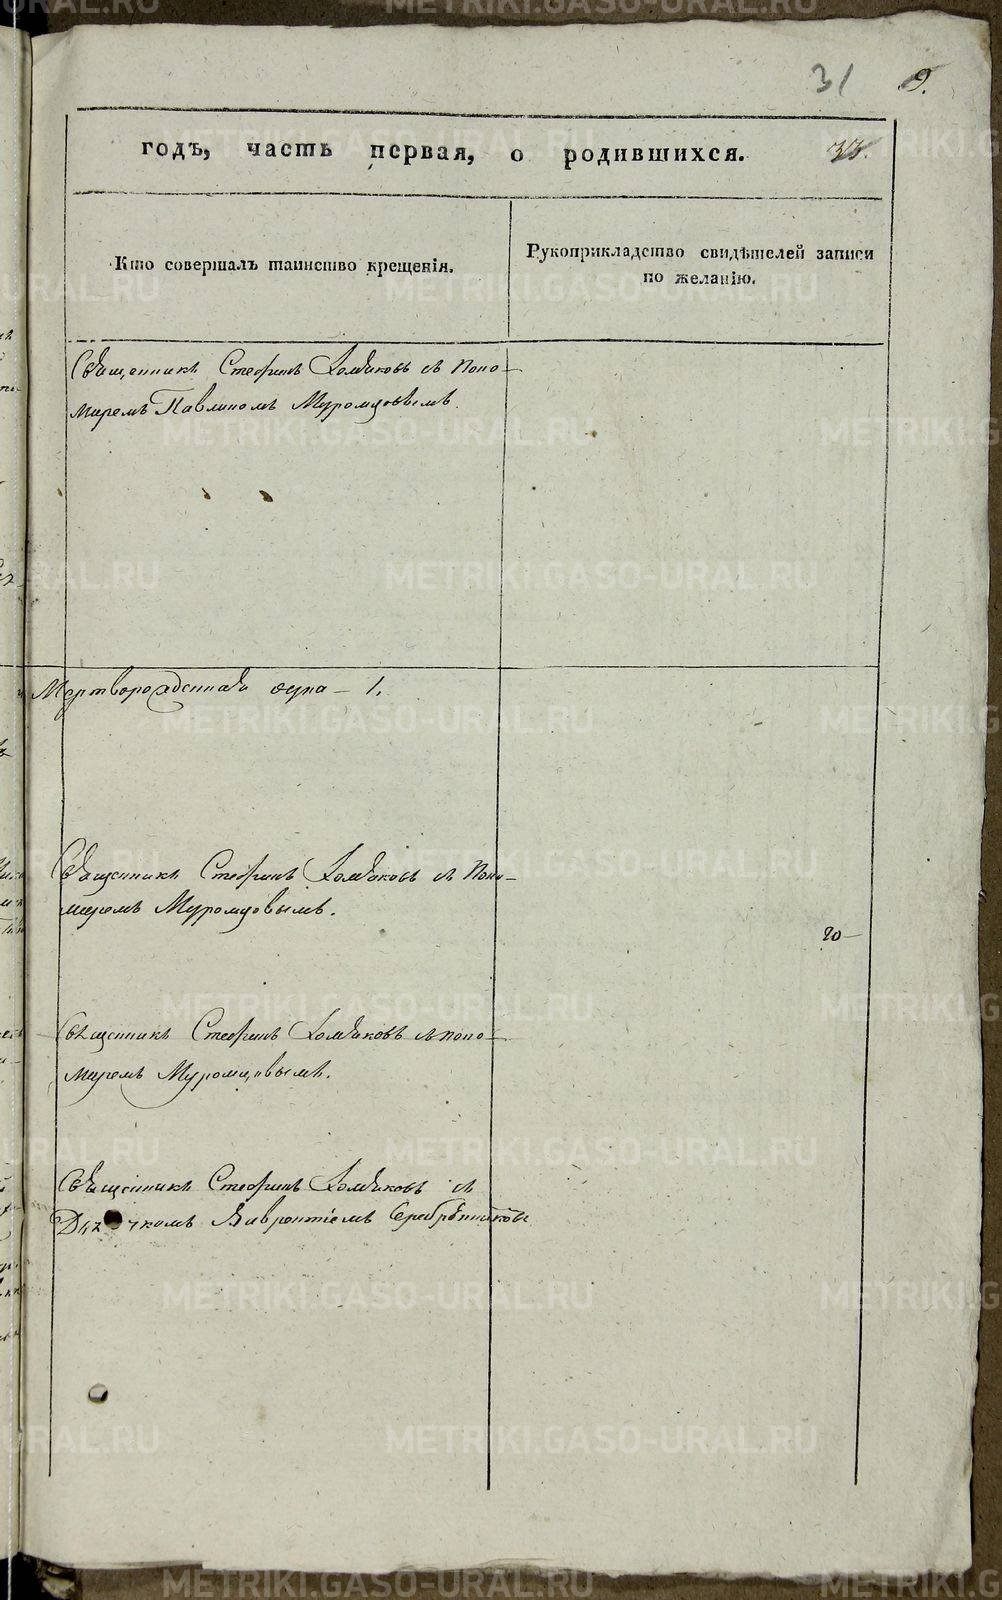 31 9.
годъ, часть первая, о родившихся. 33.
Кто совершалъ таинство крещенія.
Рукоприкладство свидѣтелей записи
по желанію.
Священникъ Стефанъ Хомяковъ съ Поно-
маремъ Павлиномъ Муромцовымъ.
Мертворожденная 1.
Священникъ Стефанъ Хомяковъ съ Поно-
маремъ Муромцовымъ.
20-
Священникъ Стефанъ Хомяковъ съ поно-
маремъ Муромцовымъ.
Священникъ Стефанъ Хомяковъ съ
Дьячкомъ Лаврентіемъ
METRIKI.GASO-URAL.RU